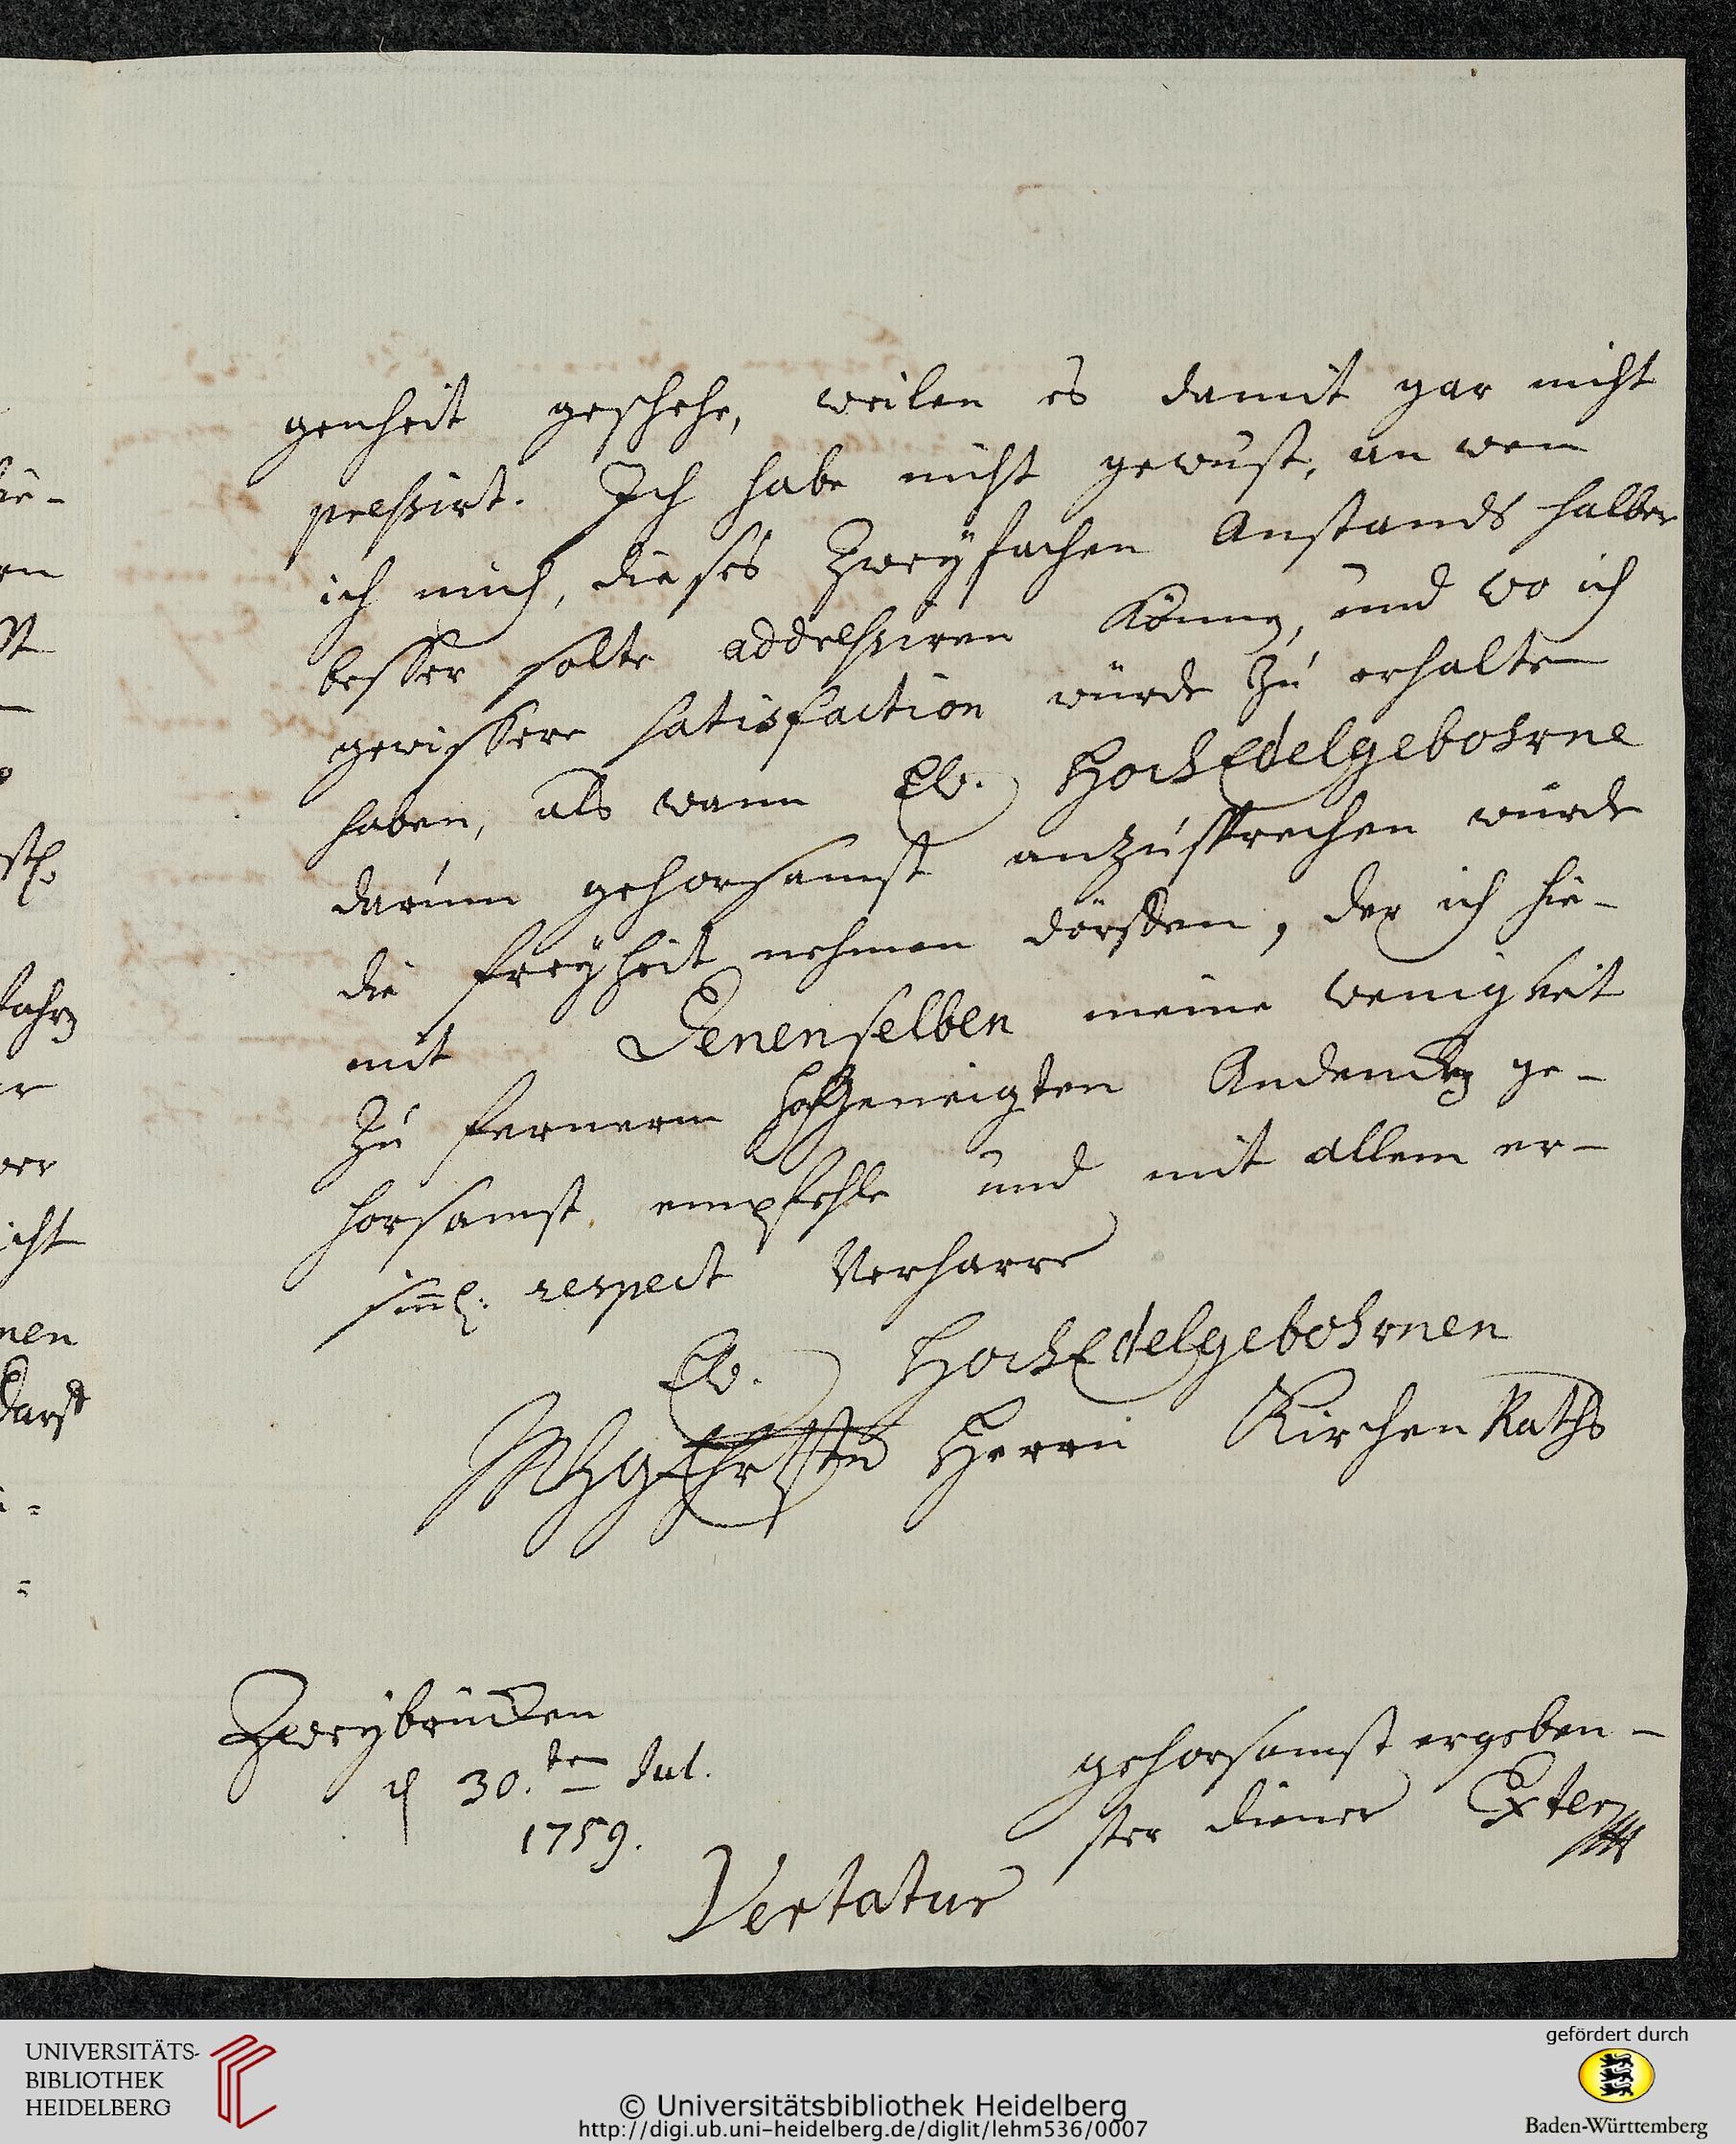 genheit geschehe, weilen es damit gar nicht
pressirt. Ich habe nicht gewust, an wem
ich mich, dieses Zweyfachen Anstands halber
besser solte addressiren können, und wo ich
gewissere satisfaction würde zu erhalten
haben, als wann Ew. HochEdelgebohrne
darum gehorsamst anzusprechen würde
die freyheit nehmen dörffen, der ich hie-
mit Denenselben meine wenigkeit
zu fernerm hochgeneigten Andencken ge-
horsamst empfehle und mit allem er-
sinnl: respect Verharre
Ew. HochEdelgebohrnen
Herrn Kirchen Raths
Zweybrücken
d 30.ten Jul.
1759.
gehorsamst ergeben-
ster diener Exter
Vertatur
UNIVERSITÄTS-
BIBLIOTHEK
HEIDELBERG
© Universitätsbibliothek Heidelberg
http://digi.ub.uni-heidelberg.de/diglit/lehm536/0007
gefördert durch
Baden-Württemberg